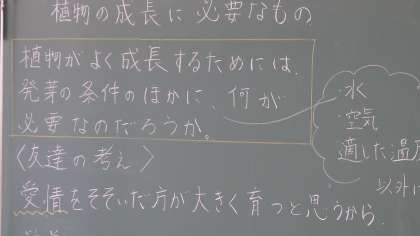 植物の成長に必要なもの
植物がよく成長するためには、
発芽の条件のほかに、何が
必要なのだろうか。
・水
・空気
適した温度
以外に
〈友達の考え〉
愛情をそそいだ方が大きく育つと思うから